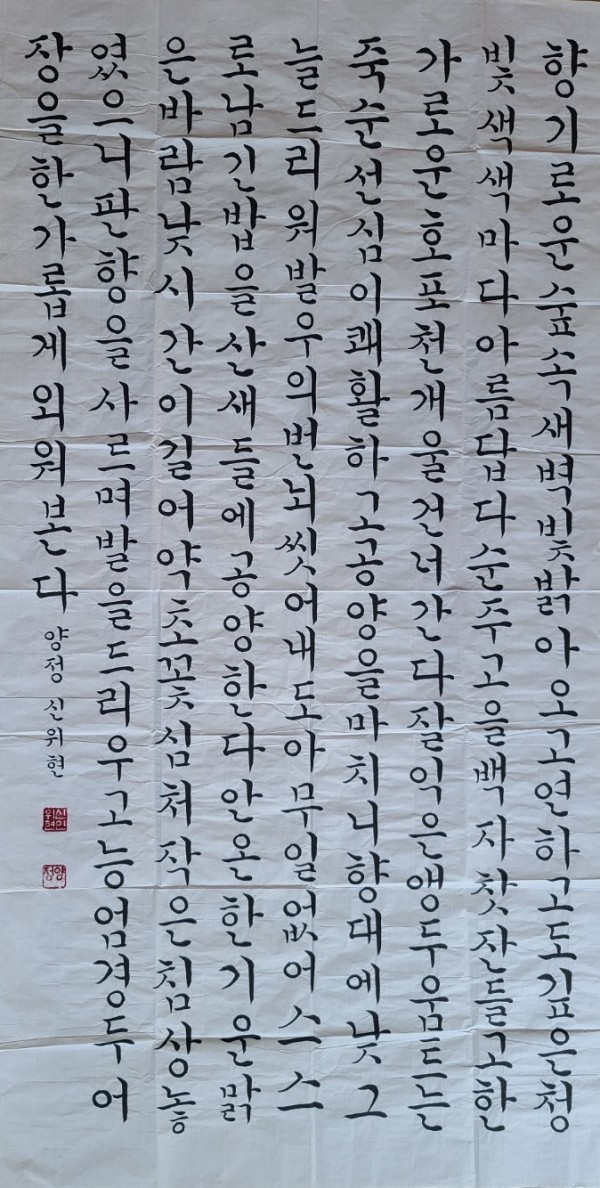 향기로운숲속새벽빛밝아오고연하고도깊은청
빛색색마다아름답다순주고을백자찻잔들고한
가로운호포천개울건너간다잘익은앵두움트는
죽순선심이쾌활하고공양을마치니향대에낮그
늘드리워발우의번뇌씻어내도아무일없어스스
로남긴밥을산새들에공양한다안온한기운맑
은바람낮시간이길어약초꽃심쳐작은침상놓
였으니판향을사르며발을드리우고능엄경두어
장을한가롭게외워본다
양정 신위현
신위현
양정